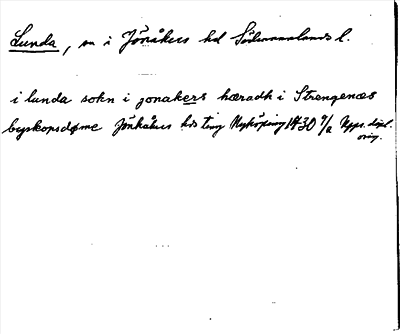 Lunda, sn i Jönåkers hd Södermannlands l.
i lunda sokn i jonakers hæradh i Strengenæs
byskopsdøme Jönåkers hds ting Nyköping 1430 9/2 Upps. dipl.
orig.